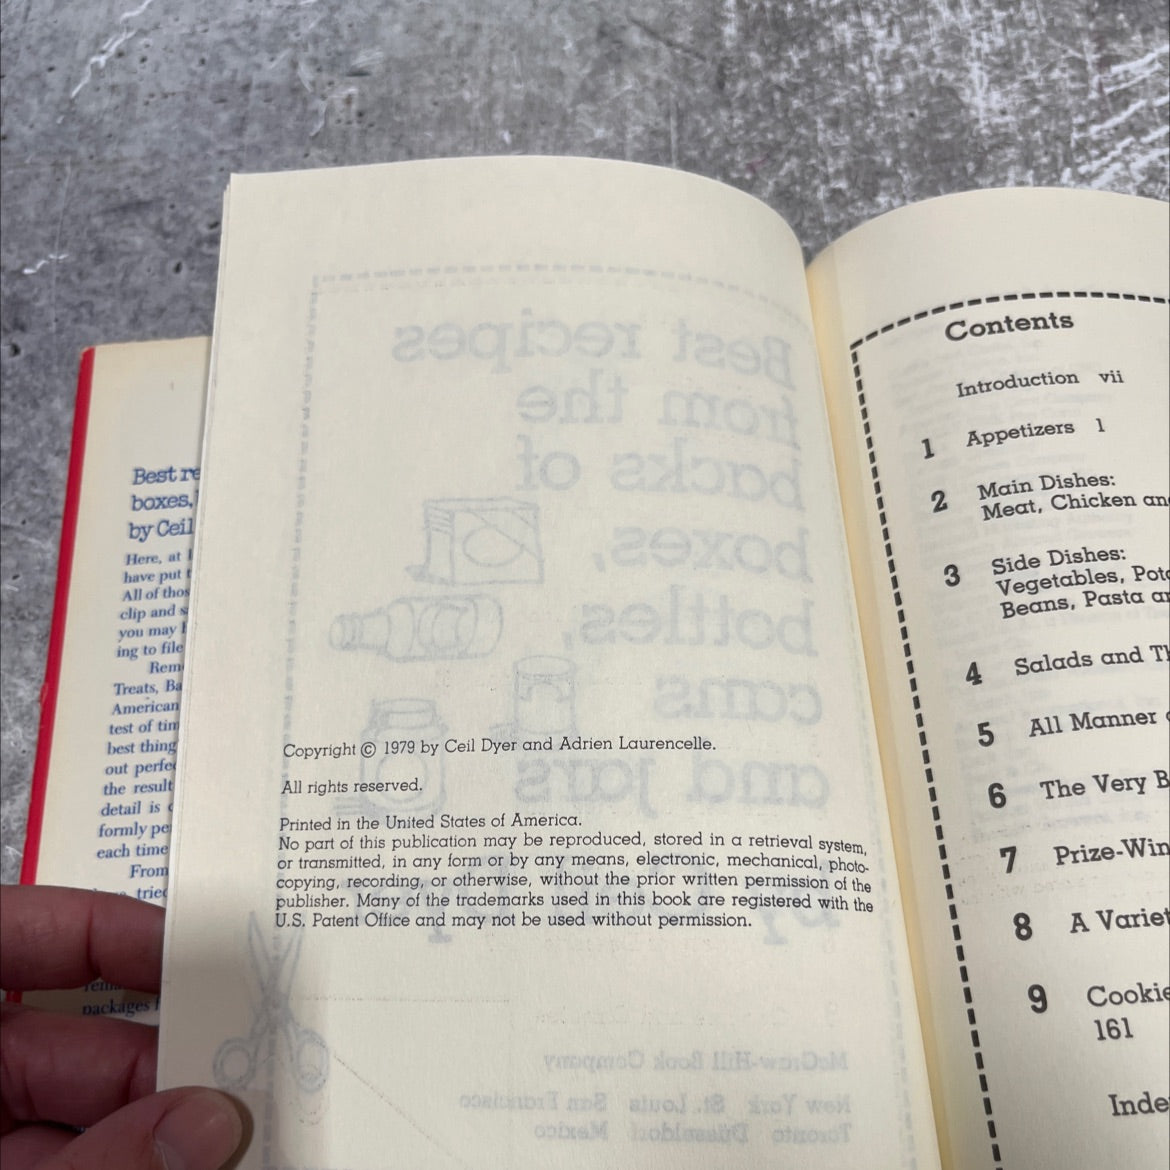 Best re
boxes,
by Ceil
Here, at
have put
All of thos
clip and s
you may
ing to file
Rem
Treats, Ba
American
test of tim
best thing
out perfec
the result
detail is
formly pe
each time
From
tried
packages f
Best recipes
from the
backs of
boxes,
bottles,
cans
and jars
Copyright © 1979 by Ceil Dyer and Adrien Laurencelle.
All rights reserved.
Printed in the United States of America.
No part of this publication may be reproduced, stored in a retrieval system,
or transmitted, in any form or by any means, electronic, mechanical, photo-
copying, recording, or otherwise, without the prior written permission of the
publisher. Many of the trademarks used in this book are registered with the
U.S. Patent Office and may not be used without permission.
McGraw-Hill Book Company
New York St. Louis San Francisco
Toronto Düsseldorf Mexico
Contents
Introduction vii
1 Appetizers 1
2 Main Dishes:
Meat, Chicken an
3 Side Dishes:
Vegetables, Pota
Beans, Pasta an
4 Salads and Th
5 All Manner
6 The Very B
7 Prize-Win
8 A Variet
9 Cookie
161
Inde